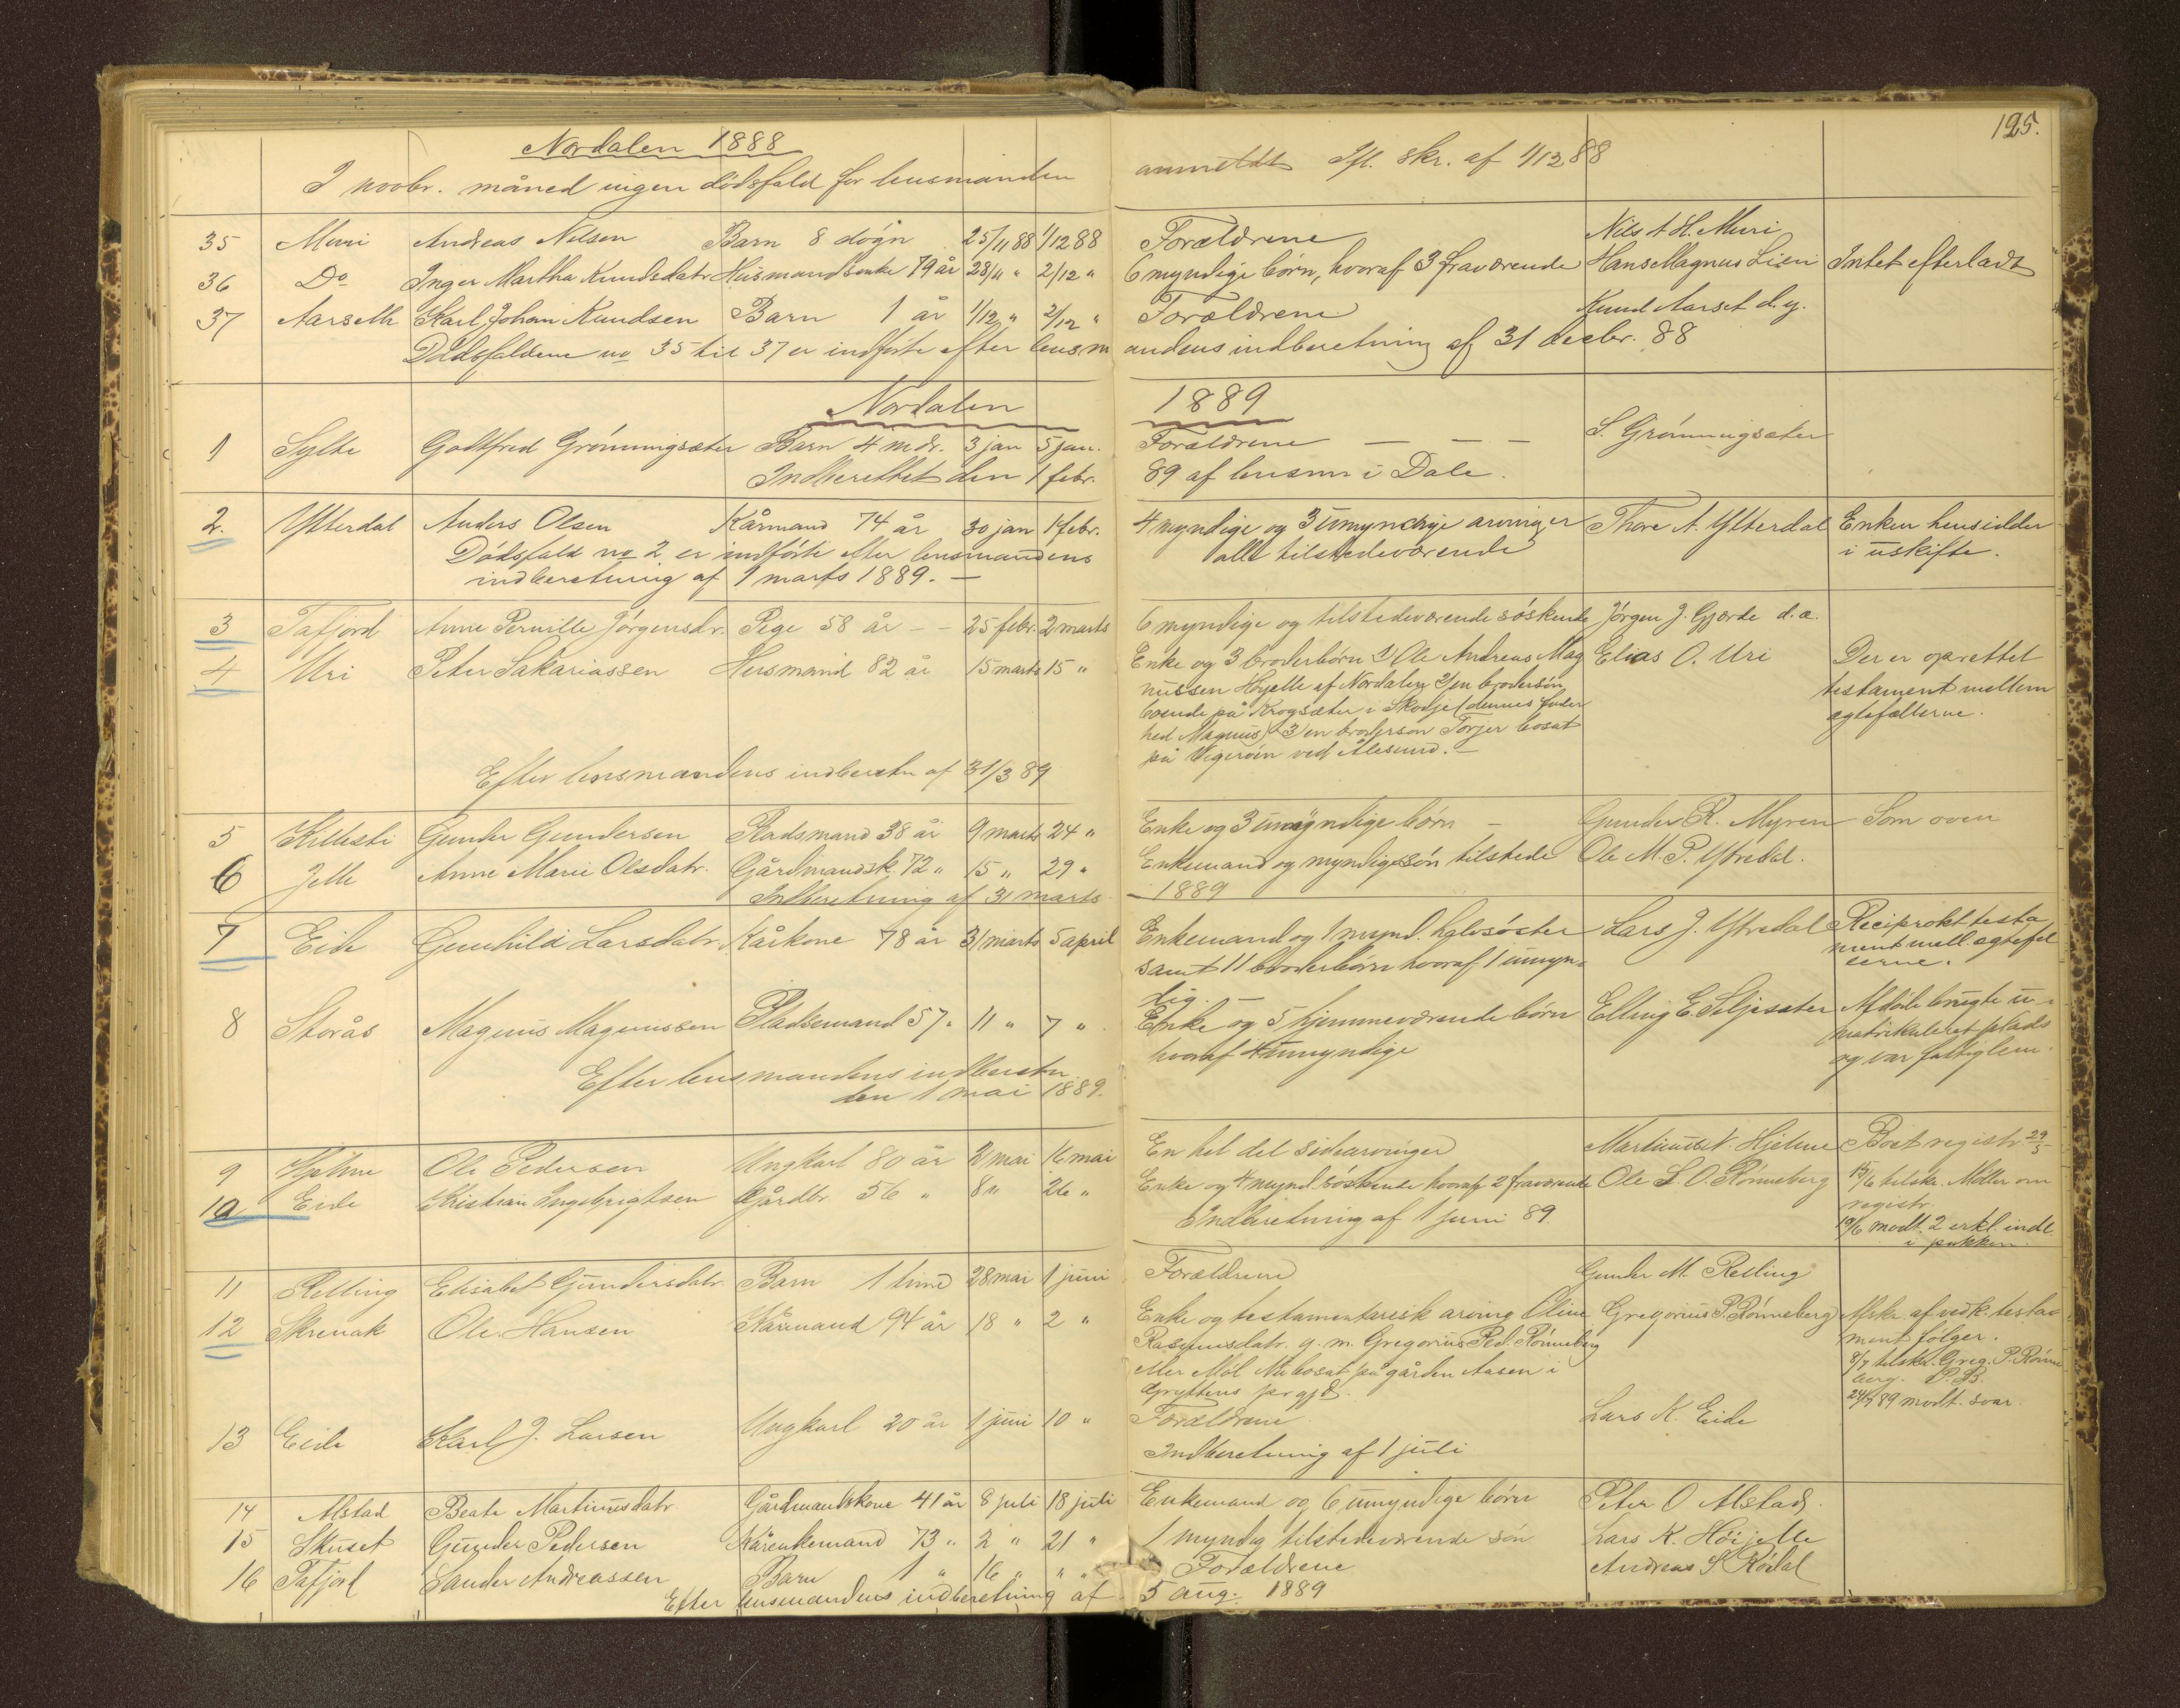 125.
Nordalen 1888
I novbr. måned ingen dödsfald for lensmanden anmeldt Ifl. skr. af 1/12 88
35 Muri Andreas Nilsen Barn 8 dögn 25/11 88 1/12 88 Forældrene Nils A H. Muri
36 Do Inger Martha Knudsdatr Husmandsenke 79 år 28/11 " 2/12 " 6 myndige börn, hvoraf 3 fraværende Hans Magnus Lien Intet efterladt
37 Aarseth Karl Johan Knudsen Barn 1 år 1/12 " 2/12 " Forældrene Knud Aarset d. y.
Dödsfaldene no 35 til 37 er indförte efter lensmandens indberetning af 31 decbr. 88
Nordalen 1889
1 Sylte Godtfred Grönningsæter Barn 4 mdr. 3 jan 5 jan. Forældrene — — — S. Grönningsæter
Indberettet den 1 febr. 89 af lensm i Dale.
2. Ytterdal Anders Olsen Kårmand 74 år 30 jan 1 febr. 4 myndige og 3 umyndige arvinger Thore A. Ytterdal Enken hensidder
Dödsfald no 2 er indförte efter lensmandens alle tilstedeværende i uskifte.
indberetning af 1 marts 1889. —
3 Tafjord Anne Pernille Jörgensdr. Pige 58 år — 25 febr. 2 marts 6 myndige og tilstedeværende söskende Jörgen J. Gjærde d. æ.
4 Uri Peter Sakariassen Husmand 82 år 15 marts 15 " Enke og 3 broderbörn 1) Ole Andreas Mag Elias O. Uri Der er oprettet
nussen Höyelle af Nordalen 2) en brodersön testament mellem
boende på Krogsæter i Skodje (dennes fader ægtefællerne.
hed Magnus) 3) en brodersøn Torjer bosat
på Vigeröen ved Ålesund. —
Efter lensmandens indberetn af 31/3 89
5 Killisti Gunder Gundersen Pladsmand 38 år 9 marts 24 " Enke og 3 umyndige börn — Gunder R. Myren Som oven
6 Jelle Anne Marie Olsdatr. Gårdmandsk. 72 " 15 " 29 " Enkemand og myndig sön tilstede Ole M. P. Ytredal.
Indberetning af 31 marts — 1889
7 Eide Gunhild Larsdatr. Kårkone 78 år 31 marts 5 april Enkemand og 1 mynd. halvsöster Lars J. Ytredal Reciprokt testa
samt 11 broderbörn hvoraf 1 umyn- ment mell. ægtefæl
dig. — lerne.
8 Storås Magnus Magnussen Pladsemand 57 " 11 " 7 " Enke og 5 hjemmeværende börn Elling E. Siljesæter Afdöde brugte u-
hvoraf 4 umyndige matrikuleret plads
og var fattiglem.
Efter lensmandens indberetn.
den 1 mai 1889.
9 Hjelme Ole Pedersen Ungkarl 80 år 2 mai 16 mai En hel del sidearvinger Martinus N. Hjelme Boet registr 29/5
10 Eide Kristian Ingebrigtsen Gårdbr. 56 " 8 " 26 " Enke og 4 mynd. söskende hvoraf 2 fraværende Ole L. O. Rönneberg 15/6 tilskr. Möller om
registr.
Indberetning af 1 juni 89. 19/6 modt. 2 erkl. indl.
i pakken.
11 Relling Elisabet Gundersdatr. Barn 1 time 28 mai 1 juni Forældrene Gunder M. Relling
12 Skrenak Ole Hansen Kårmand 94 år 18 " 2 " Enke og testamentarisk arving Oline Gregorius P. Rönneberg Afskr. af vedk. testa-
Rasmusdatr. g. m. Gregorius Ped. Rönneberg ment fölger.
eller Möl. Nu bosat på gården Aasen i 8/7 tilskr. Greg. P. Rönne
Gryttens prgjd. berg. P. B.
24/7 89 modt. svar.
13 Eide Karl J. Larsen Ungkarl 20 år 1 juni 10 " Forældrene Lars K. Eide
Indberetning af 1 juli
14 Alstad Beate Martinusdatr. Gårdmandskone 41 år 8 juli 18 juli Enkemand og 6 umyndige börn Peter O Alstad.
15 Skuset Gunder Pedersen Kårenkemand 73 " 2 " 21 " 1 myndig tilstedeværende sön Lars K. Höijelle
16 Tafjord Sander Andreassen Barn 1 " 16 " " " Forældrene Andreas S. Rödal
Efter lensmandens indberetning af 5 aug. 1889